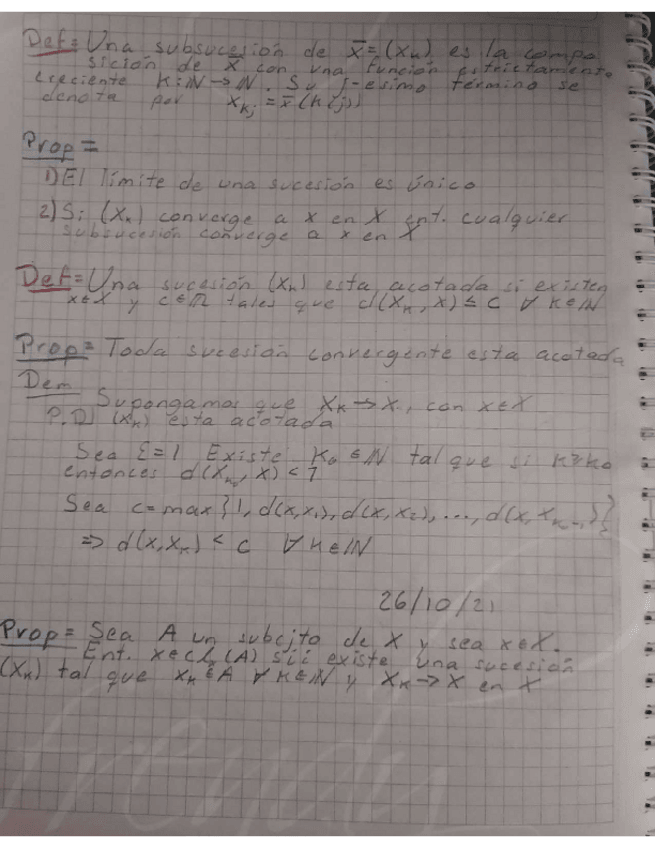 Def= Una subsucesión de x̄=(xₖ) es la compo
sición de x̄ con una función estrictamente
creciente K:ℕ→ℕ. Su j-esimo término se
denota por x_{kⱼ} = x̄(k(j))
Prop=
1) El límite de una sucesión es único
2) Si (xₖ) converge a x en X ent. cualquier
subsucesión converge a x en X
Def= Una sucesión (xₖ) esta acotada si existen
x∈X y c∈ℝ tales que d(xₖ, x) ≤ c ∀ k∈ℕ
Prop= Toda sucesión convergente esta acotada
Dem
Supongamos que xₖ→x, con x∈X
P.D. (xₖ) esta acotada
Sea ε=1 Existe k₀∈ℕ tal que si k≥k₀
entonces d(xₖ, x) < 1
Sea c=max{1, d(x,x₁), d(x,x₂), ..., d(x,x_{k₀-1})}
=> d(x,xₖ) < c ∀ k∈ℕ
26/10/21
Prop= Sea A un subcjto de X y sea x∈X.
Ent. x∈cl (A) sii existe una sucesión
(xₖ) tal que xₖ∈A ∀ k∈ℕ y xₖ→x en X